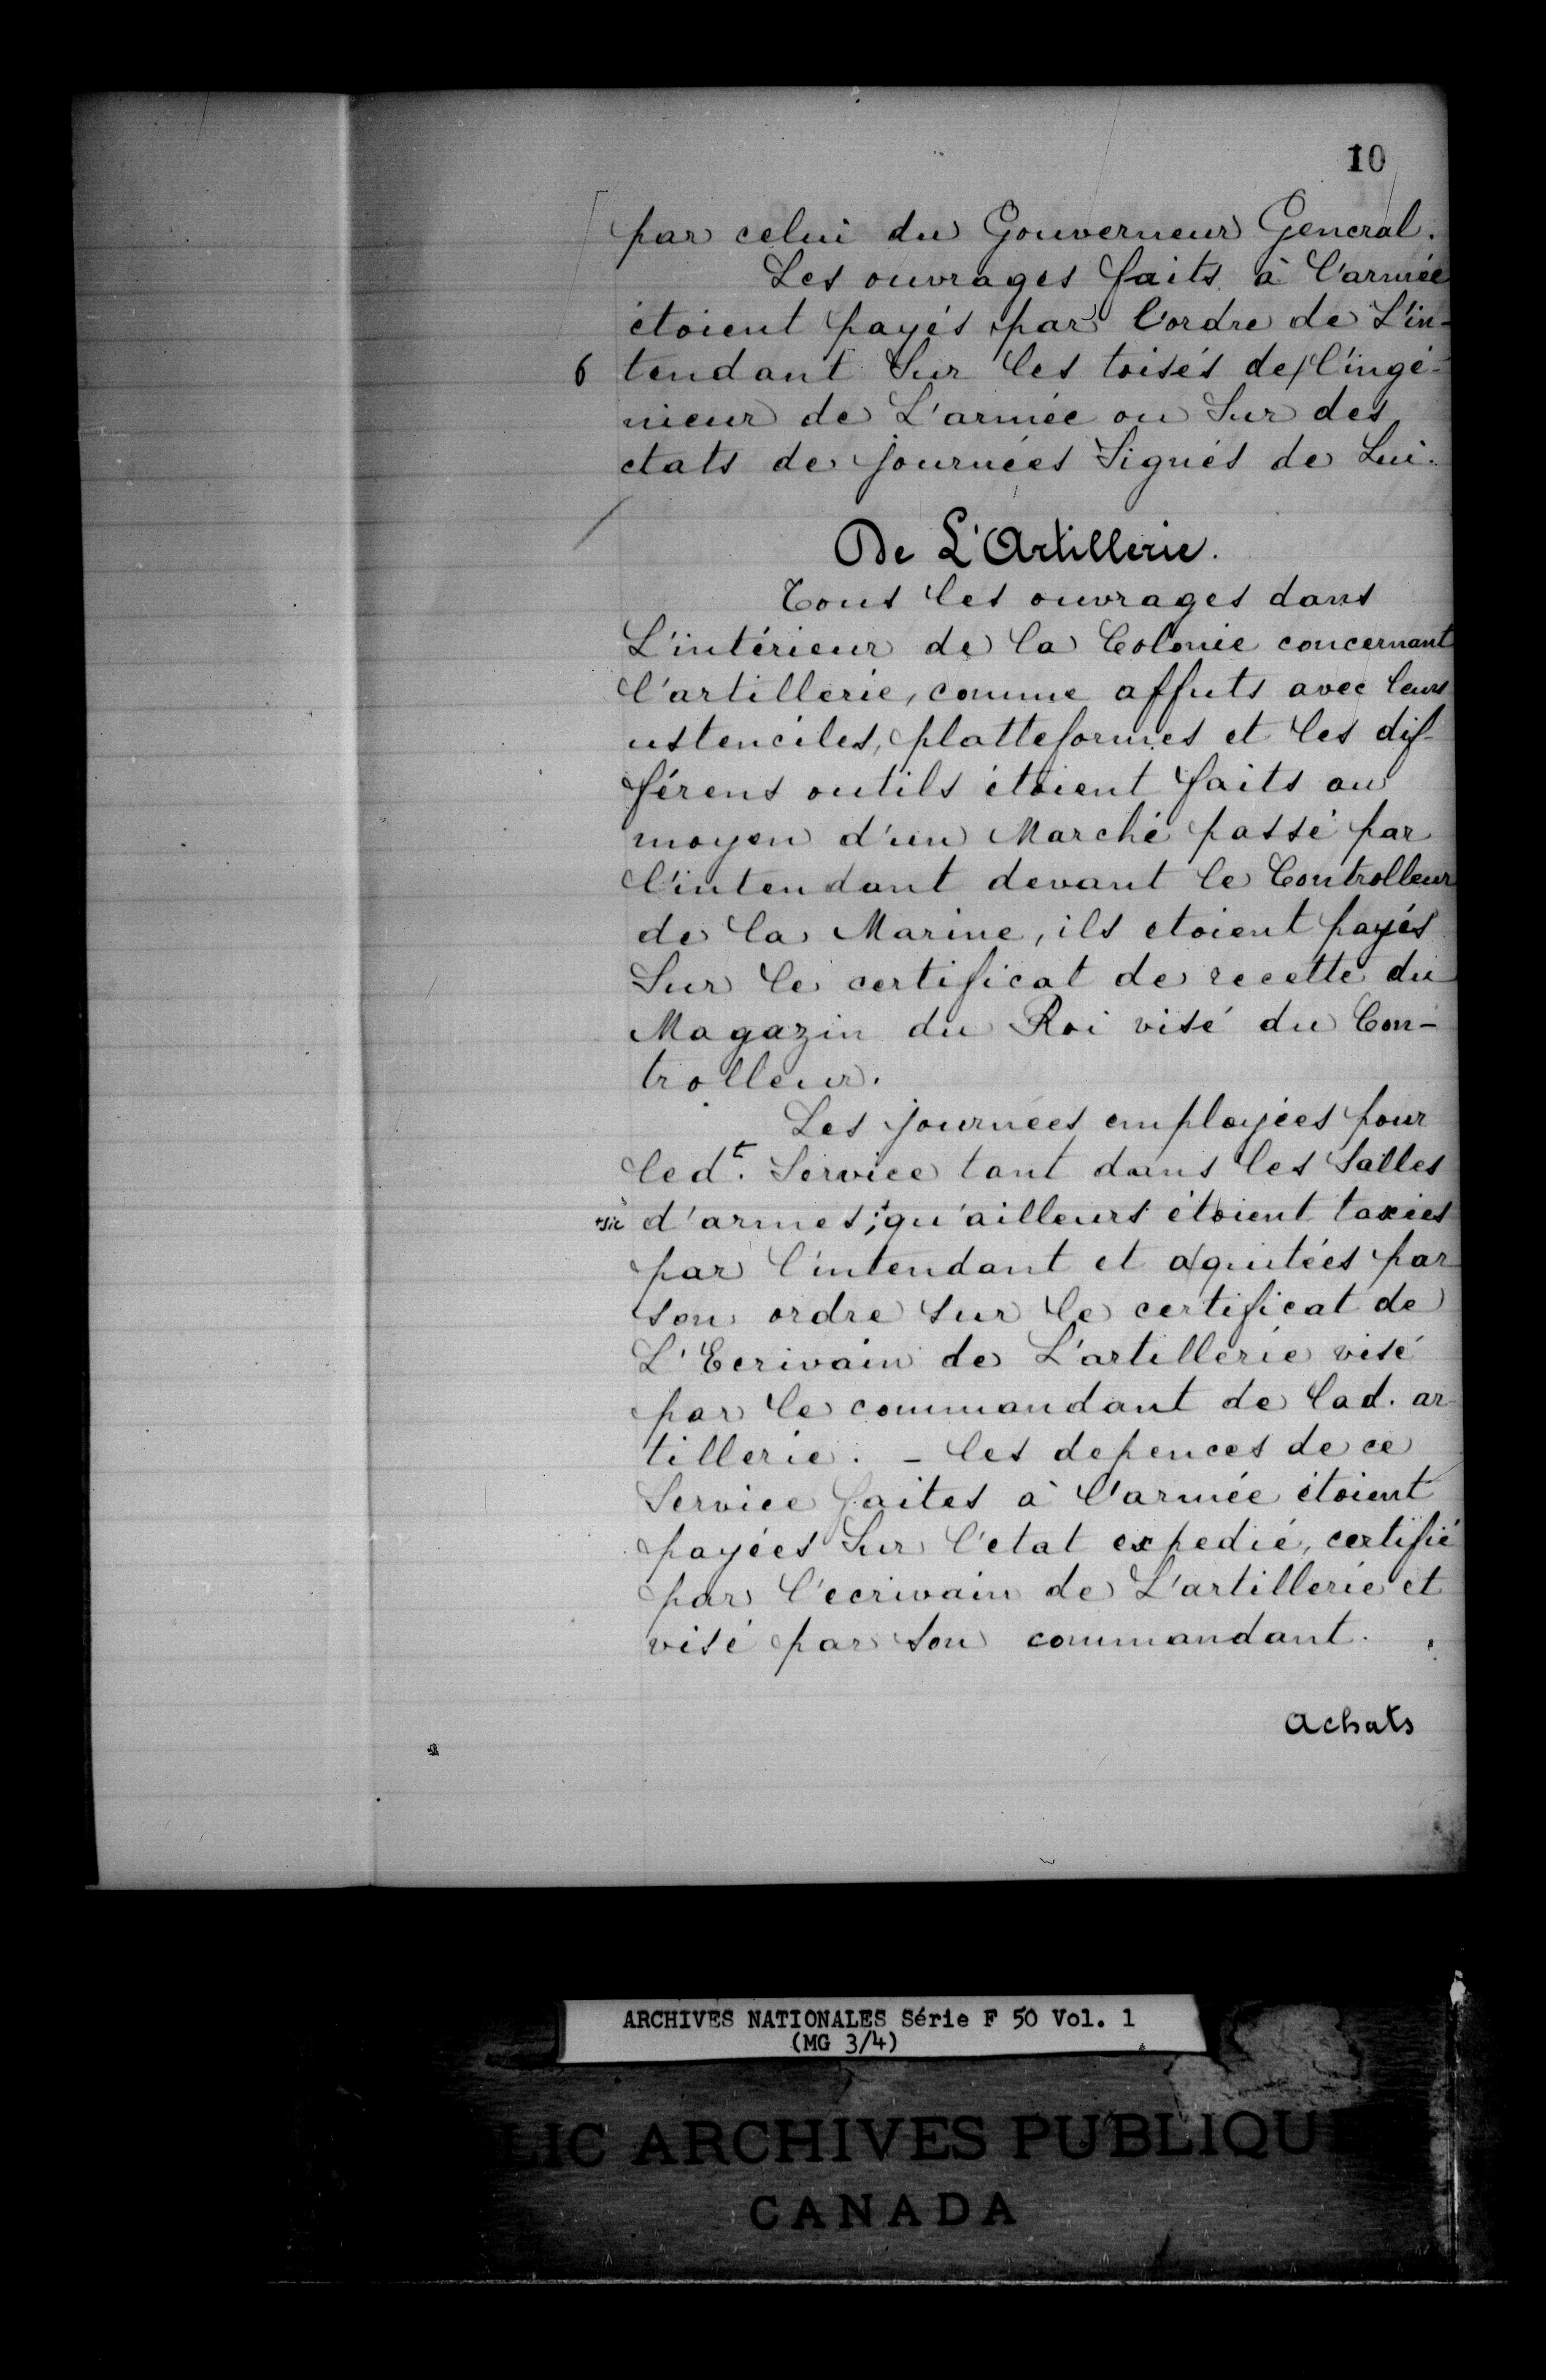 10
par celui du Gouverneur General.
Les ouvrages faits à l'armée
étoient payés par l'ordre de L'in-
6 tendant Sur les toisés de/l'ingé-
nieur de L'armée ou Sur des
etats de journées Signés de Lui.
De L'Artillerie.
Tous les ouvrages dans
L'intérieur de la Colonie concernant
l'artillerie, comme affuts avec leurs
ustenciles, platteformes et les dif-
férens outils étoient faits au
moyen d'un Marché passé par
l'intendant devant le Controlleur
de la Marine, ils etoient payés
Sur le certificat de recette du
Magazin du Roi visé du Con-
trolleur.
Les journées employées pour
led.t Service tant dans les Salles
+sic d'armes;+ qu'ailleurs étoient taxées
par l'intendant et aquitées par
son ordre sur le certificat de
L'Ecrivain de L'artillerie visé
par le commandant de lad. ar-
tillerie. - les depences de ce
Service faites à l'armée étoient
payées Sur l'etat expedié, certifié
par l'ecrivain de L'artillerie et
visé par son commandant.
Achats
ARCHIVES NATIONALES Série F 50 Vol. 1
(MG 3/4)
LIC ARCHIVES PUBLIQU
CANADA